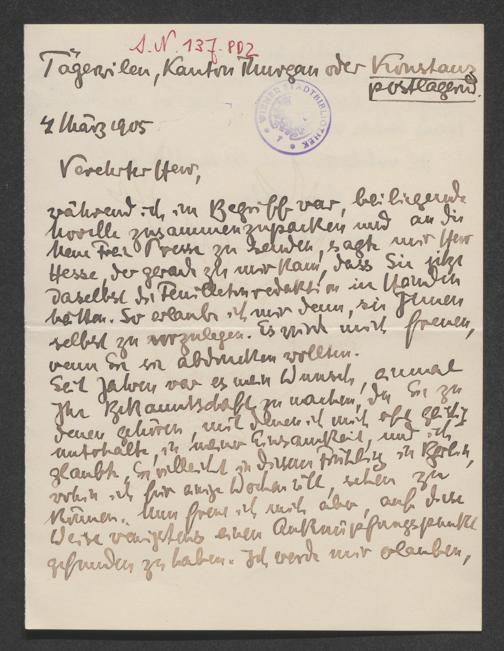 I.N. 137.PDZ
Tägerwilen, Kanton Thurgau oder Konstanz
postlagernd.
WIENER STADTBIBLIOTHEK
4 März 1905
Verehrter Herr,
während ich im Begriff war, beiliegende
Novelle zusammenzupacken und an die
Neue Freie Presse zu senden, sagte mir Herr
Hesse, der gerade zu mir kam, dass Sie jetzt
daselbst die Feuilletonredaktion in Händen
hätten. So erlaube ich mir denn, sie Ihnen
selbst zu vorzulegen. Es würde mich freuen,
wenn Sie sie abdrucken wollten.
Seit Jahren war es mein Wunsch, einmal
Ihre Bekanntschaft zu machen, da Sie zu
denen gehören, mit denen ich mich oft geistig
unterhalte, in meiner Einsamkeit, und ich
glaubte, Sie vielleicht in diesem Frühling in Berlin,
wohin ich für einige Wochen will, sehen zu
können. Nun freue ich mich aber, auf diese
Weise wenigstens einen Anknüpfungspunkt
gefunden zu haben. Ich werde mir erlauben,